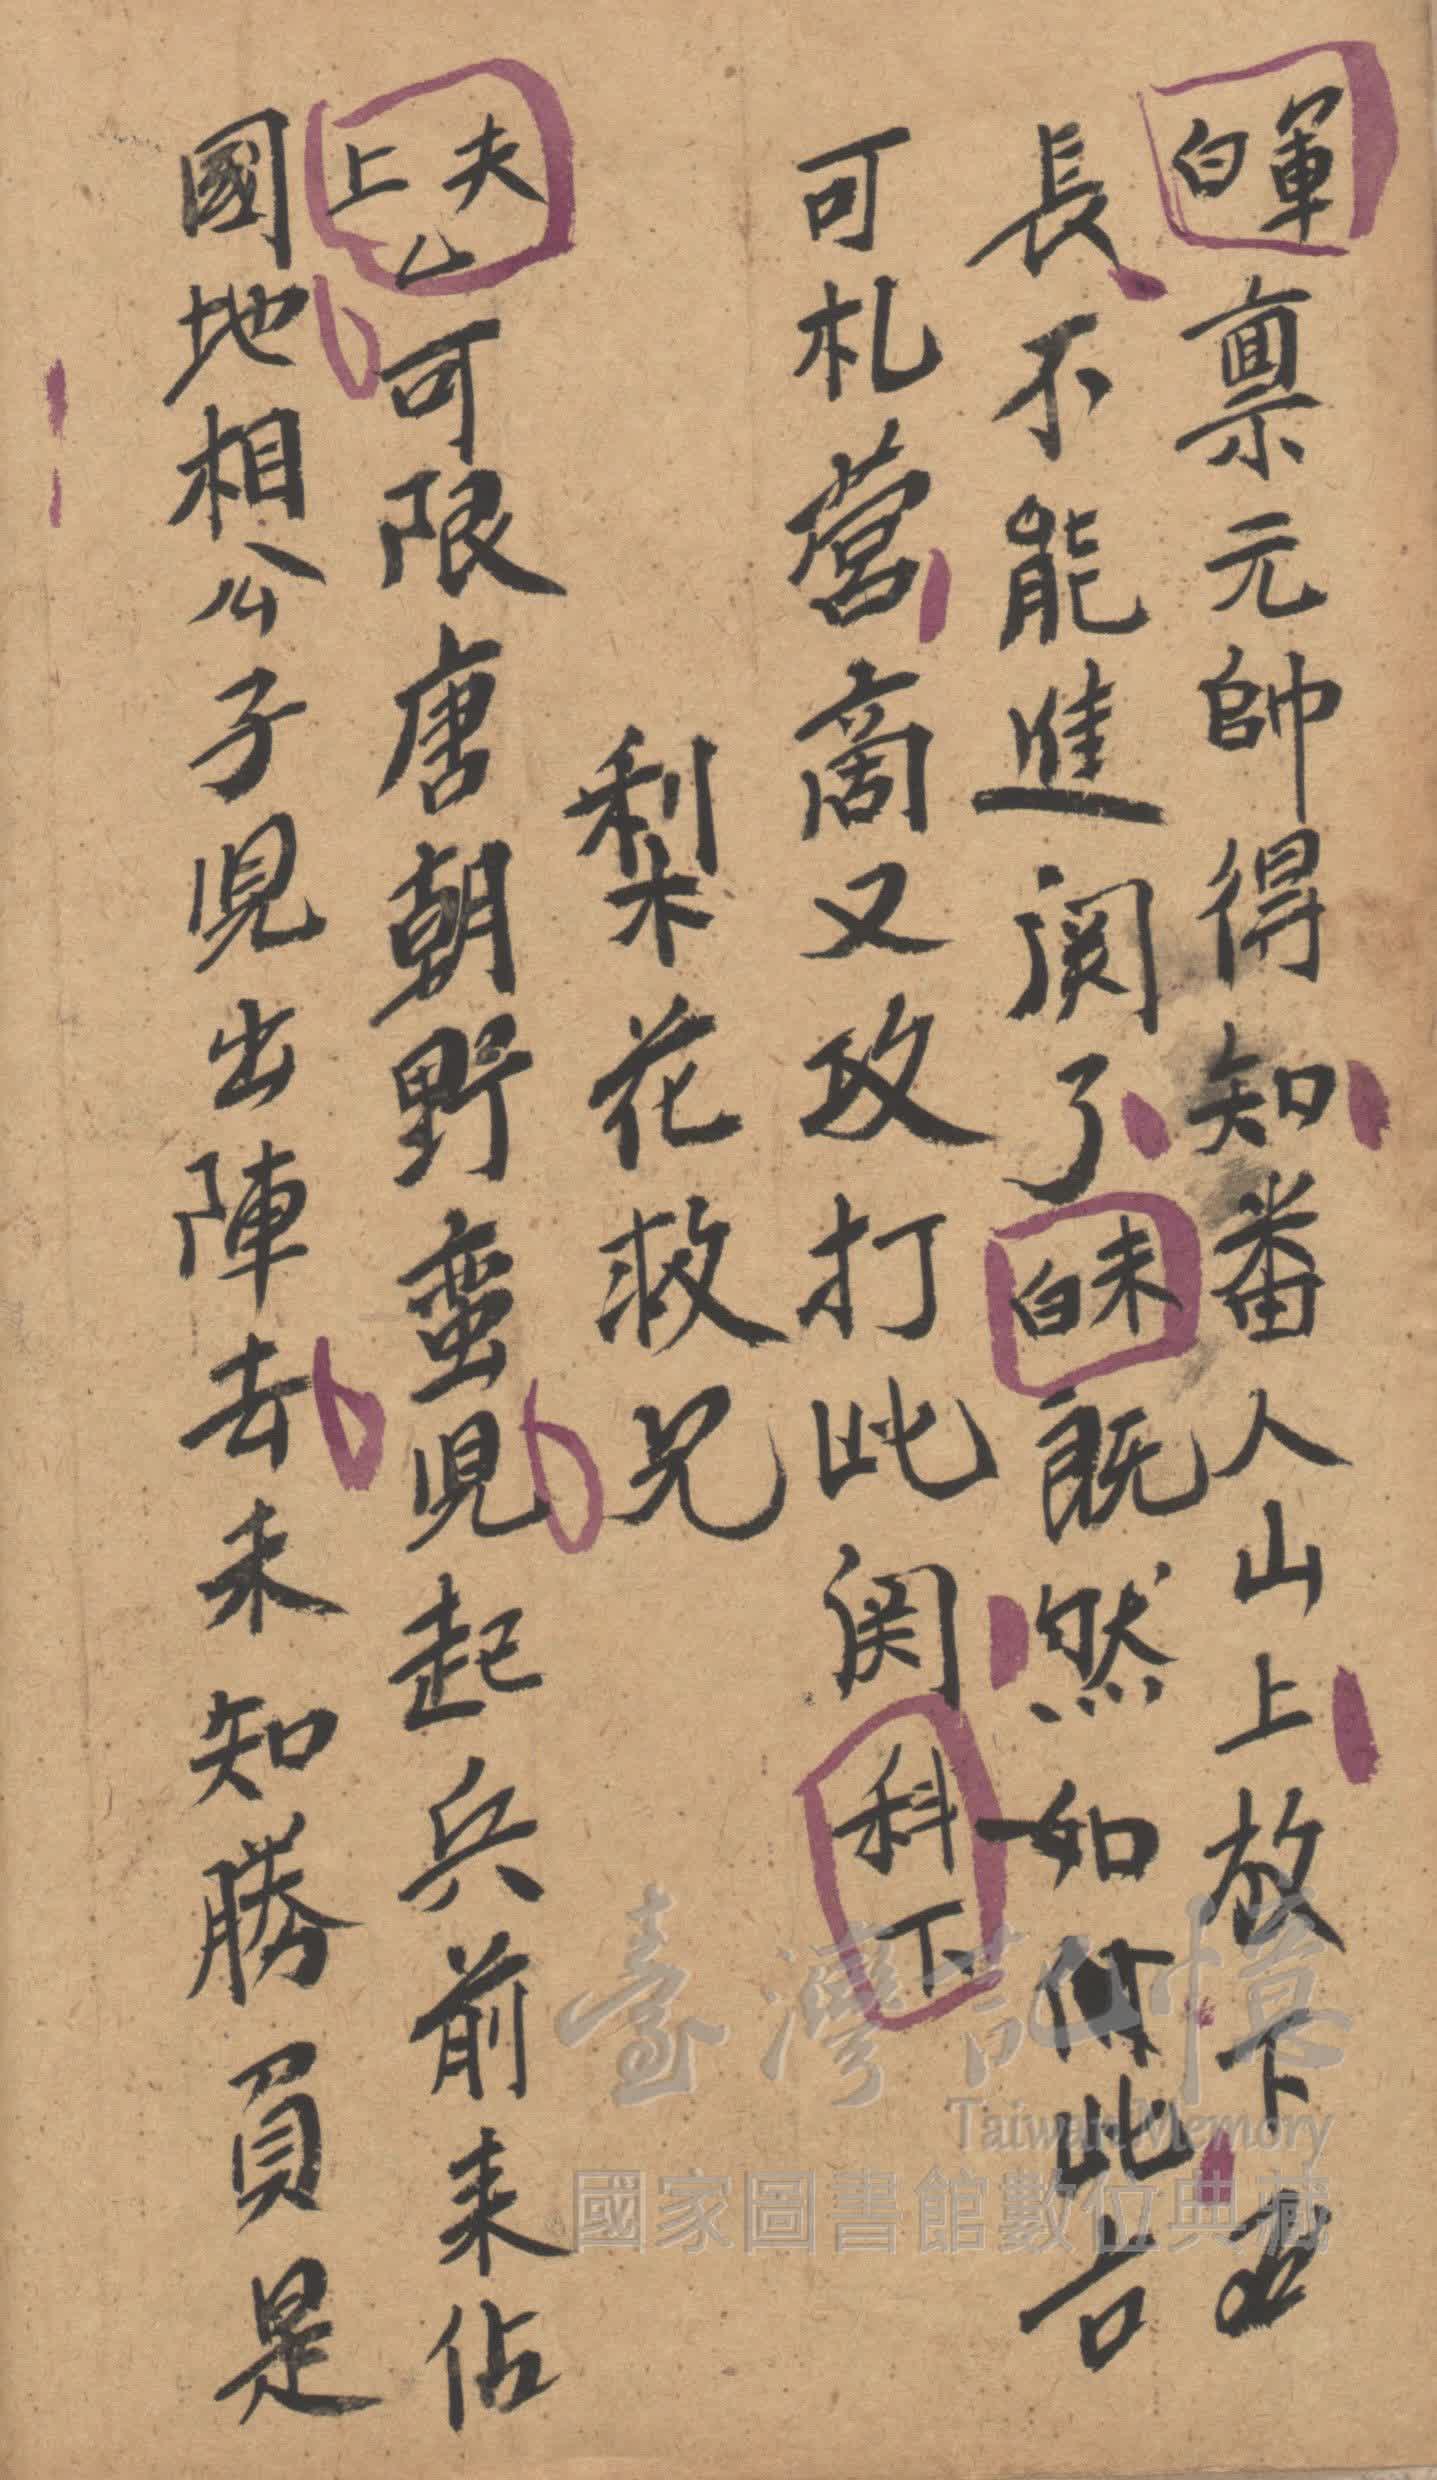 軍白稟元帥得知番人山上放下
長不能進関了末白既然如何此言
可札營商又攻打此関科下
梨花救兄
夫上么可限唐朝野蛮児起兵前来佔
國地相公子児出陣去未知勝負是
臺灣記憶
Taiwan Memory
國家圖書館數位典藏